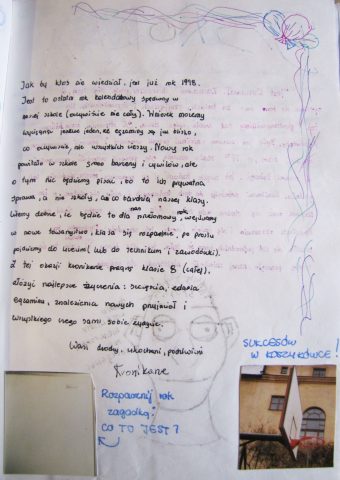 Jak by ktoś nie wiedział, jest już rok 1998.
Jest to ostatni rok kalendarzowy spędzony w
naszej szkole (oczywiście nie cały). Wniosek możemy
wyciągnąć jeszcze jeden, że egzaminy są już blisko,
co oczywiście nie wszystkich cieszy. Nowy rok
powitało w szkole sporo, ale
o tym nie będziemy pisać, bo to ich prywatna
sprawa, a nie szkoły, ani co bardziej naszej klasy.
Wiemy dobrze, że będzie to dla nas rok, wejdziemy
w nowe towarzystwo, klasa się rozpadnie, po prostu
pójdziemy do liceum (lub do technikum i zawodówki).
Z tej okazji kronikarze pragną klasie 8 (całej)
złożyć najlepsze życzenia: szczęścia, zdania
egzaminu, znalezienia nowych przyjaciół i
wszystkiego czego sami sobie życzycie.
Wasi drodzy, ukochani, podchwytni
Kronikarze
Rozpocznij rok
zagadką:
CO TO JEST?
SUKCESÓW
W KOSZYKÓWCE!